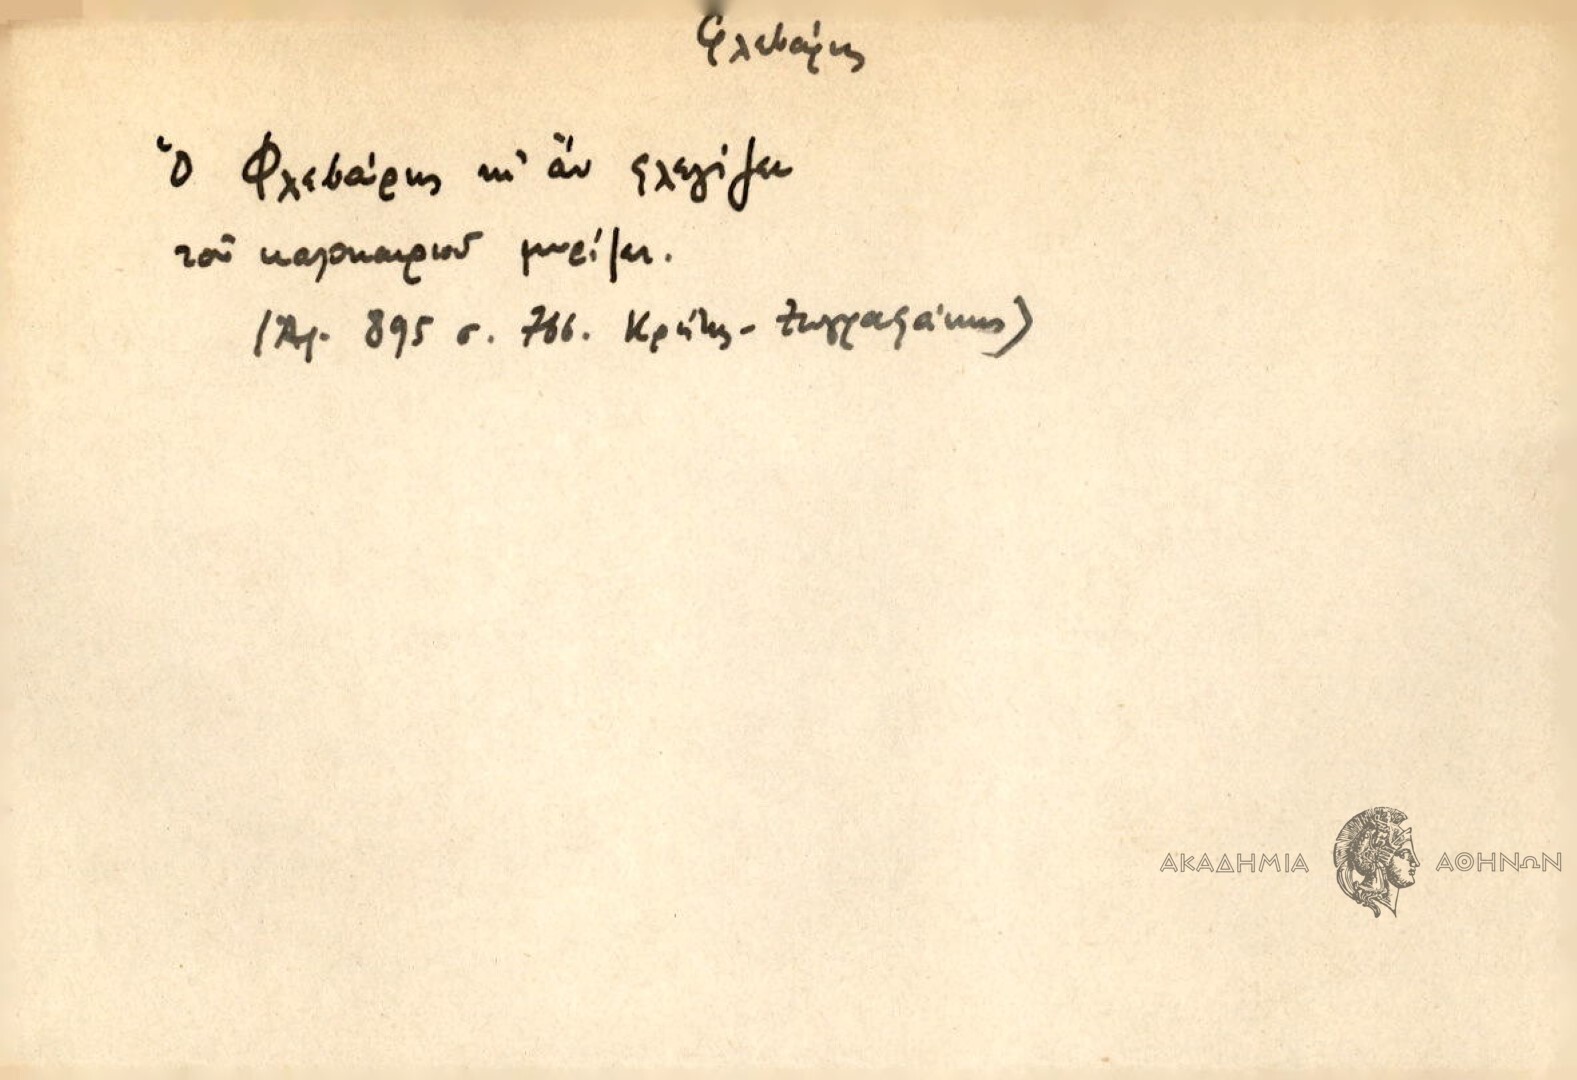 Φλεβάρης
Ὁ Φλεβάρης κι' ἂν φλεγίζει
τοῦ καλοκαιριοῦ μυρίζει.
(Ἀρ. 895 σ. 766. Κρήτης - Ζωγραφάκης)
ΑΚΑΔΗΜΙΑ ΑΘΗΝΩΝ